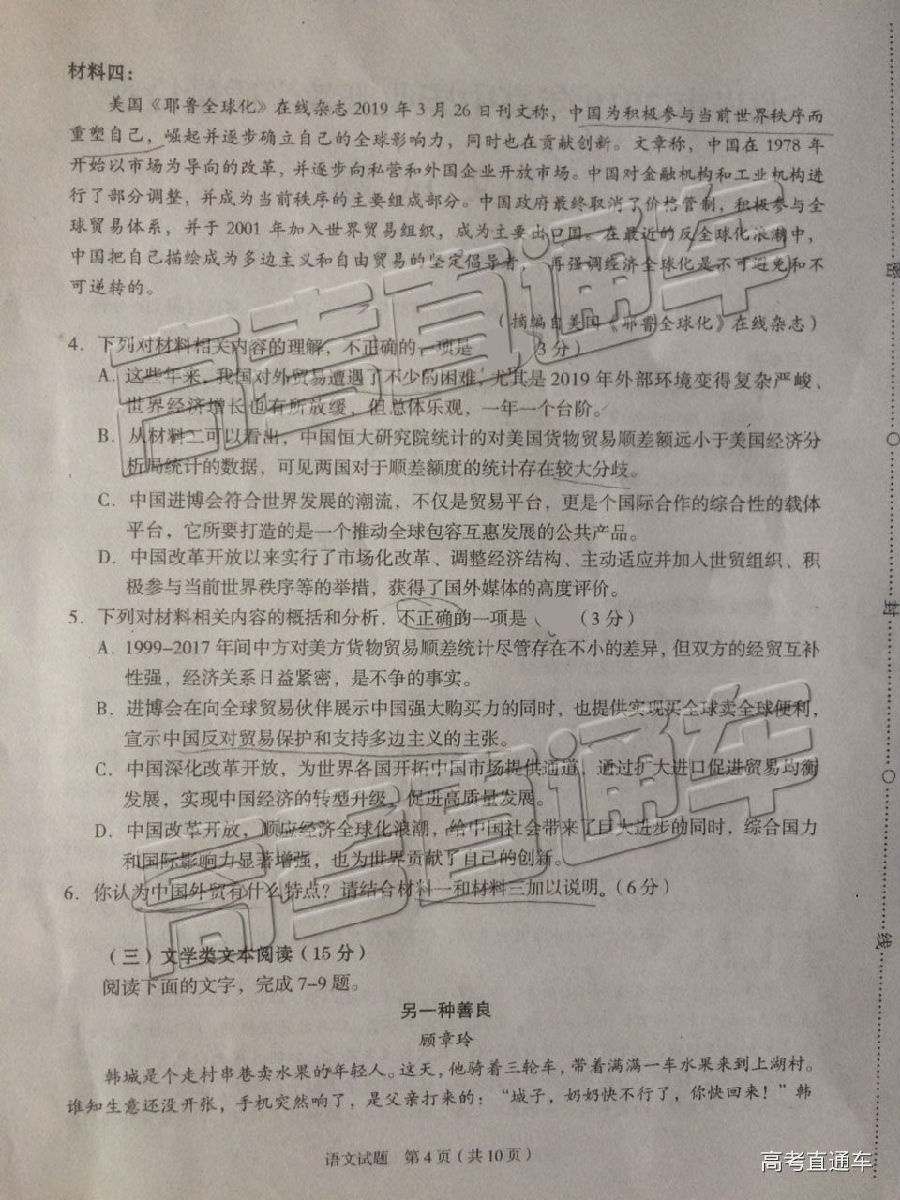 材料四：
美国《耶鲁全球化》在线杂志 2019 年 3 月 26 日刊文称，中国为积极参与当前世界秩序而
重塑自己，崛起并逐步确立自己的全球影响力，同时也在贡献创新。文章称，中国在 1978 年
开始以市场为导向的改革，并逐步向私营和外国企业开放市场。中国对金融机构和工业机构进
行了部分调整，并成为当前秩序的主要组成部分。中国政府最终取消了价格管制，积极参与全
球贸易体系，并于 2001 年加入世界贸易组织，成为主要出口国。在最近的反全球化浪潮中，
中国把自己描绘成为多边主义和自由贸易的坚定倡导者， 再强调经济全球化是不可避免和不
可逆转的。
（摘编自美国《耶鲁全球化》在线杂志）
4．下列对材料相关内容的理解，不正确的 项是 3 分）
A．这些年来，我国对外贸易遭遇了不少的困难，尤其是 2019 年外部环境变得复杂严峻、
世界经济增长也有所放缓，但总体乐观，一年一个台阶。
B．从材料二可以看出，中国恒大研究院统计的对美国货物贸易顺差额远小于美国经济分
析局统计的数据，可见两国对于顺差额度的统计存在较大分歧。
C．中国进博会符合世界发展的潮流，不仅是贸易平台，更是个国际合作的综合性的载体
平台，它所要打造的是一个推动全球包容互惠发展的公共产品。
D．中国改革开放以来实行了市场化改革、调整经济结构、主动适应并加入世贸组织、积
极参与当前世界秩序等的举措，获得了国外媒体的高度评价。
5．下列对材料相关内容的概括和分析，不正确的一项是（ （3 分）
A．1999–2017 年间中方对美方货物贸易顺差统计尽管存在不小的差异，但双方的经贸互补
性强，经济关系日益紧密，是不争的事实。
B．进博会在向全球贸易伙伴展示中国强大购买力的同时，也提供实现买全球卖全球便利，
宣示中国反对贸易保护和支持多边主义的主张。
C．中国深化改革开放，为世界各国开拓中国市场提供通道，通过扩大进口促进贸易均衡
发展，实现中国经济的转型升级，促进高质量发展。
D．中国改革开放，顺应经济全球化浪潮，给中国社会带来了巨大进步的同时，综合国力
和国际影响力显著增强，也为世界贡献了自己的创新。
6．你认为中国外贸有什么特点？请结合材料一和材料三加以说明。（6 分）
（三）文学类文本阅读（15 分）
阅读下面的文字，完成 7–9 题。
另一种善良
顾章玲
韩城是个走村串巷卖水果的年轻人。这天，他骑着三轮车，带着满满一车水果来到上湖村。
谁知生意还没开张，手机突然响了，是父亲打来的：“城子，奶奶快不行了，你快回来！”韩
语文试题 第 4 页（共 10 页）
密
封
线
高考直通车
高考直通车
高考直通车